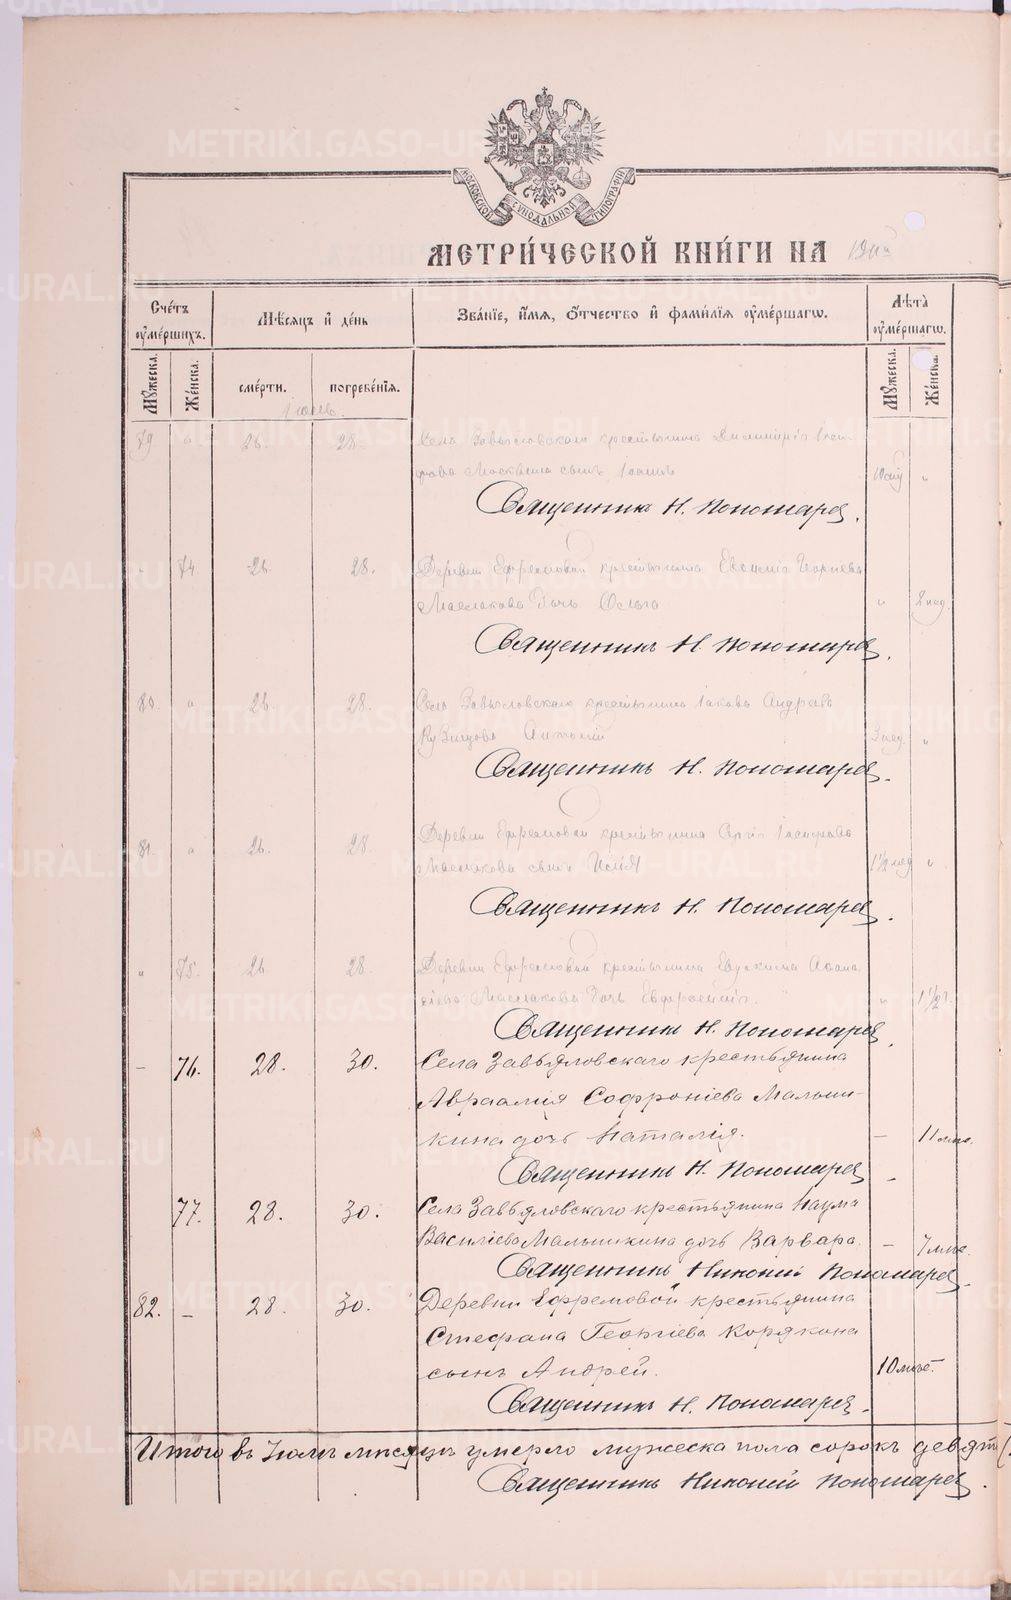 МОСКОВСКОЙ СѴНОДАЛЬНОЙ ТИПОГРАФІИ
МЕТРИ́ЧЕСКОЙ КНИ́ГИ НА
Сче́тъ оуме́ршихъ.
Мѣ́сяцъ и де́нь
Зва́нїе, и́мя, о́тчество и фами́лїя оуме́ршагѡ.
Лѣта̀ оуме́ршагѡ.
Му́жеска.
Же́нска.
сме́рти.
погребе́нїя.
Му́жеска.
Же́нска.
79 " 26. 28. Села Завьяловскаго крестьянина Димитрія
Москвина сынъ Іоаннъ "
Священникъ Н. Пономарев.
74. 26. 28. Деревни Ефремовой крестьянина Евсимія Георгіева
Маслакова дочь Ольга " 2 нед.
Священникъ Н. Пономарев.
80. " 26. 28. Села Завьяловскаго крестьянина Іакова Андреева
Кузнецова Антоній 3 нед. "
Священникъ Н. Пономарев.
81. " 26. 28. Деревни Ефремовой крестьянина
Маслакова сынъ Илія 1 1/2 нед "
Священникъ Н. Пономарев.
" 75. 26. 28. Деревни Ефремовой крестьянина Евдокима Афана
сіева Маслакова дочь Евфросинія. " 1 1/2 г.
Священникъ Н. Пономарев.
– 76. 28. 30. Села Завьяловскаго крестьянина
Авраамія Софроніева Малыш-
кина дочь Наталія. – 11 мѣс.
Священникъ Н. Пономарев.
77. 28. 30. Села Завьяловскаго крестьянина Наума
Василіева Малышкина дочь Варвара. – 7 мѣс.
Священникъ Никоній Пономарев.
82. – 28. 30. Деревни Ефремовой крестьянина
Стефана Георгіева Корякина
сынъ Андрей. 10 мѣс.
Священникъ Н. Пономарев.
Итого въ Іюлѣ мѣсяцѣ умерло мужеска пола сорокъ девять (
Священникъ Никоній Пономарев.
METRIKI.GASO-URAL.RU